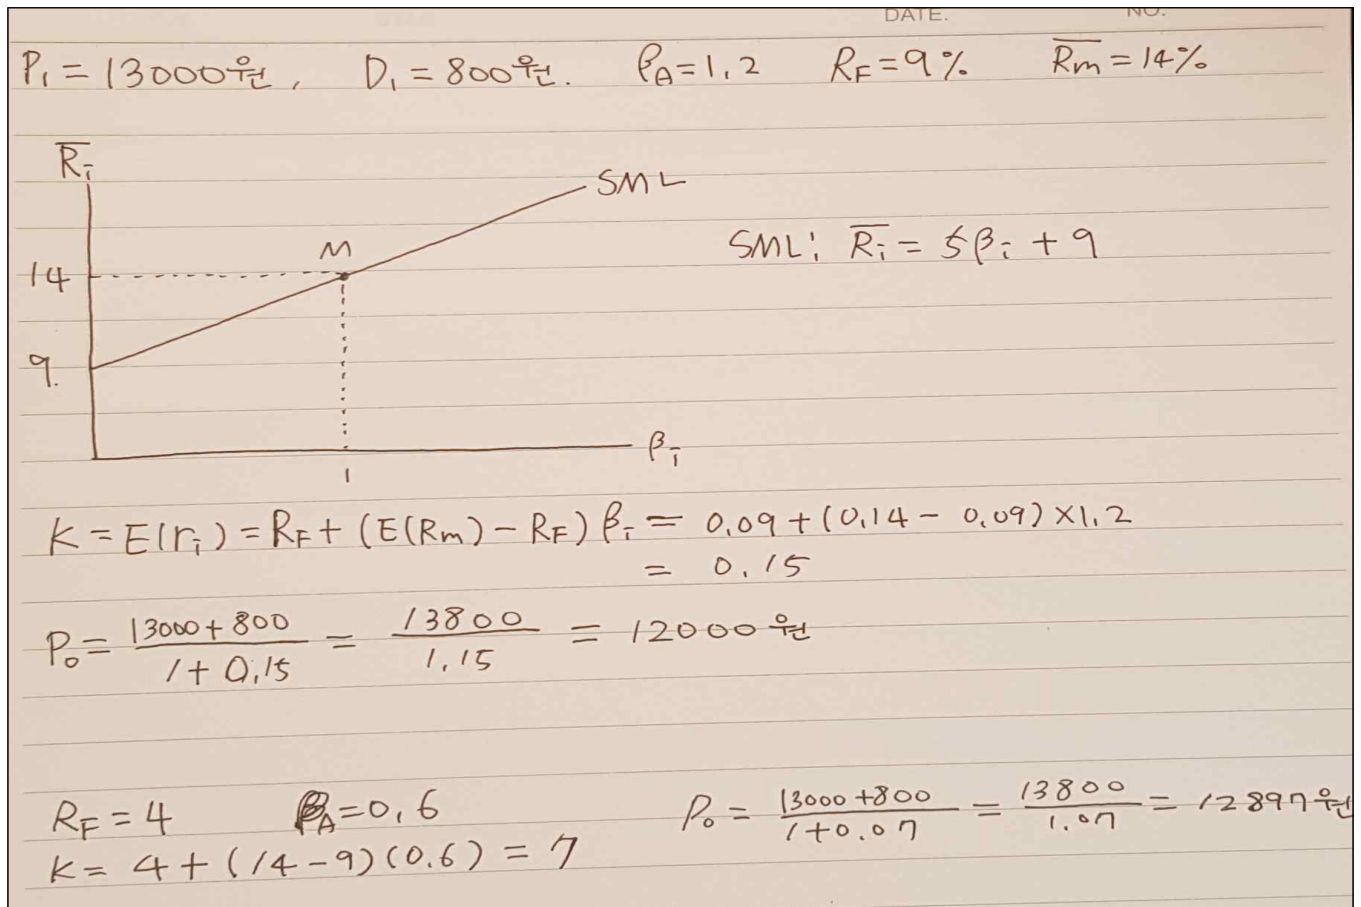 DATE. NO.
P₁ = 13000원, D₁ = 800원. β_A = 1,2 R_F = 9% \overline{Rm} = 14%
\overline{R_i}
SML
M
SML: \overline{R_i} = 5β_i + 9
14
9.
β_i
1
K = E(r_i) = R_F + (E(Rm) - R_F) β_i = 0.09 + (0.14 - 0.09) × 1.2
= 0.15
P₀ = \frac{13000 + 800}{1 + 0.15} = \frac{13800}{1.15} = 12000원
R_F = 4 β_A = 0.6 P₀ = \frac{13000 + 800}{1 + 0.07} = \frac{13800}{1.07} = 12897원
K = 4 + (14 - 9)(0.6) = 7